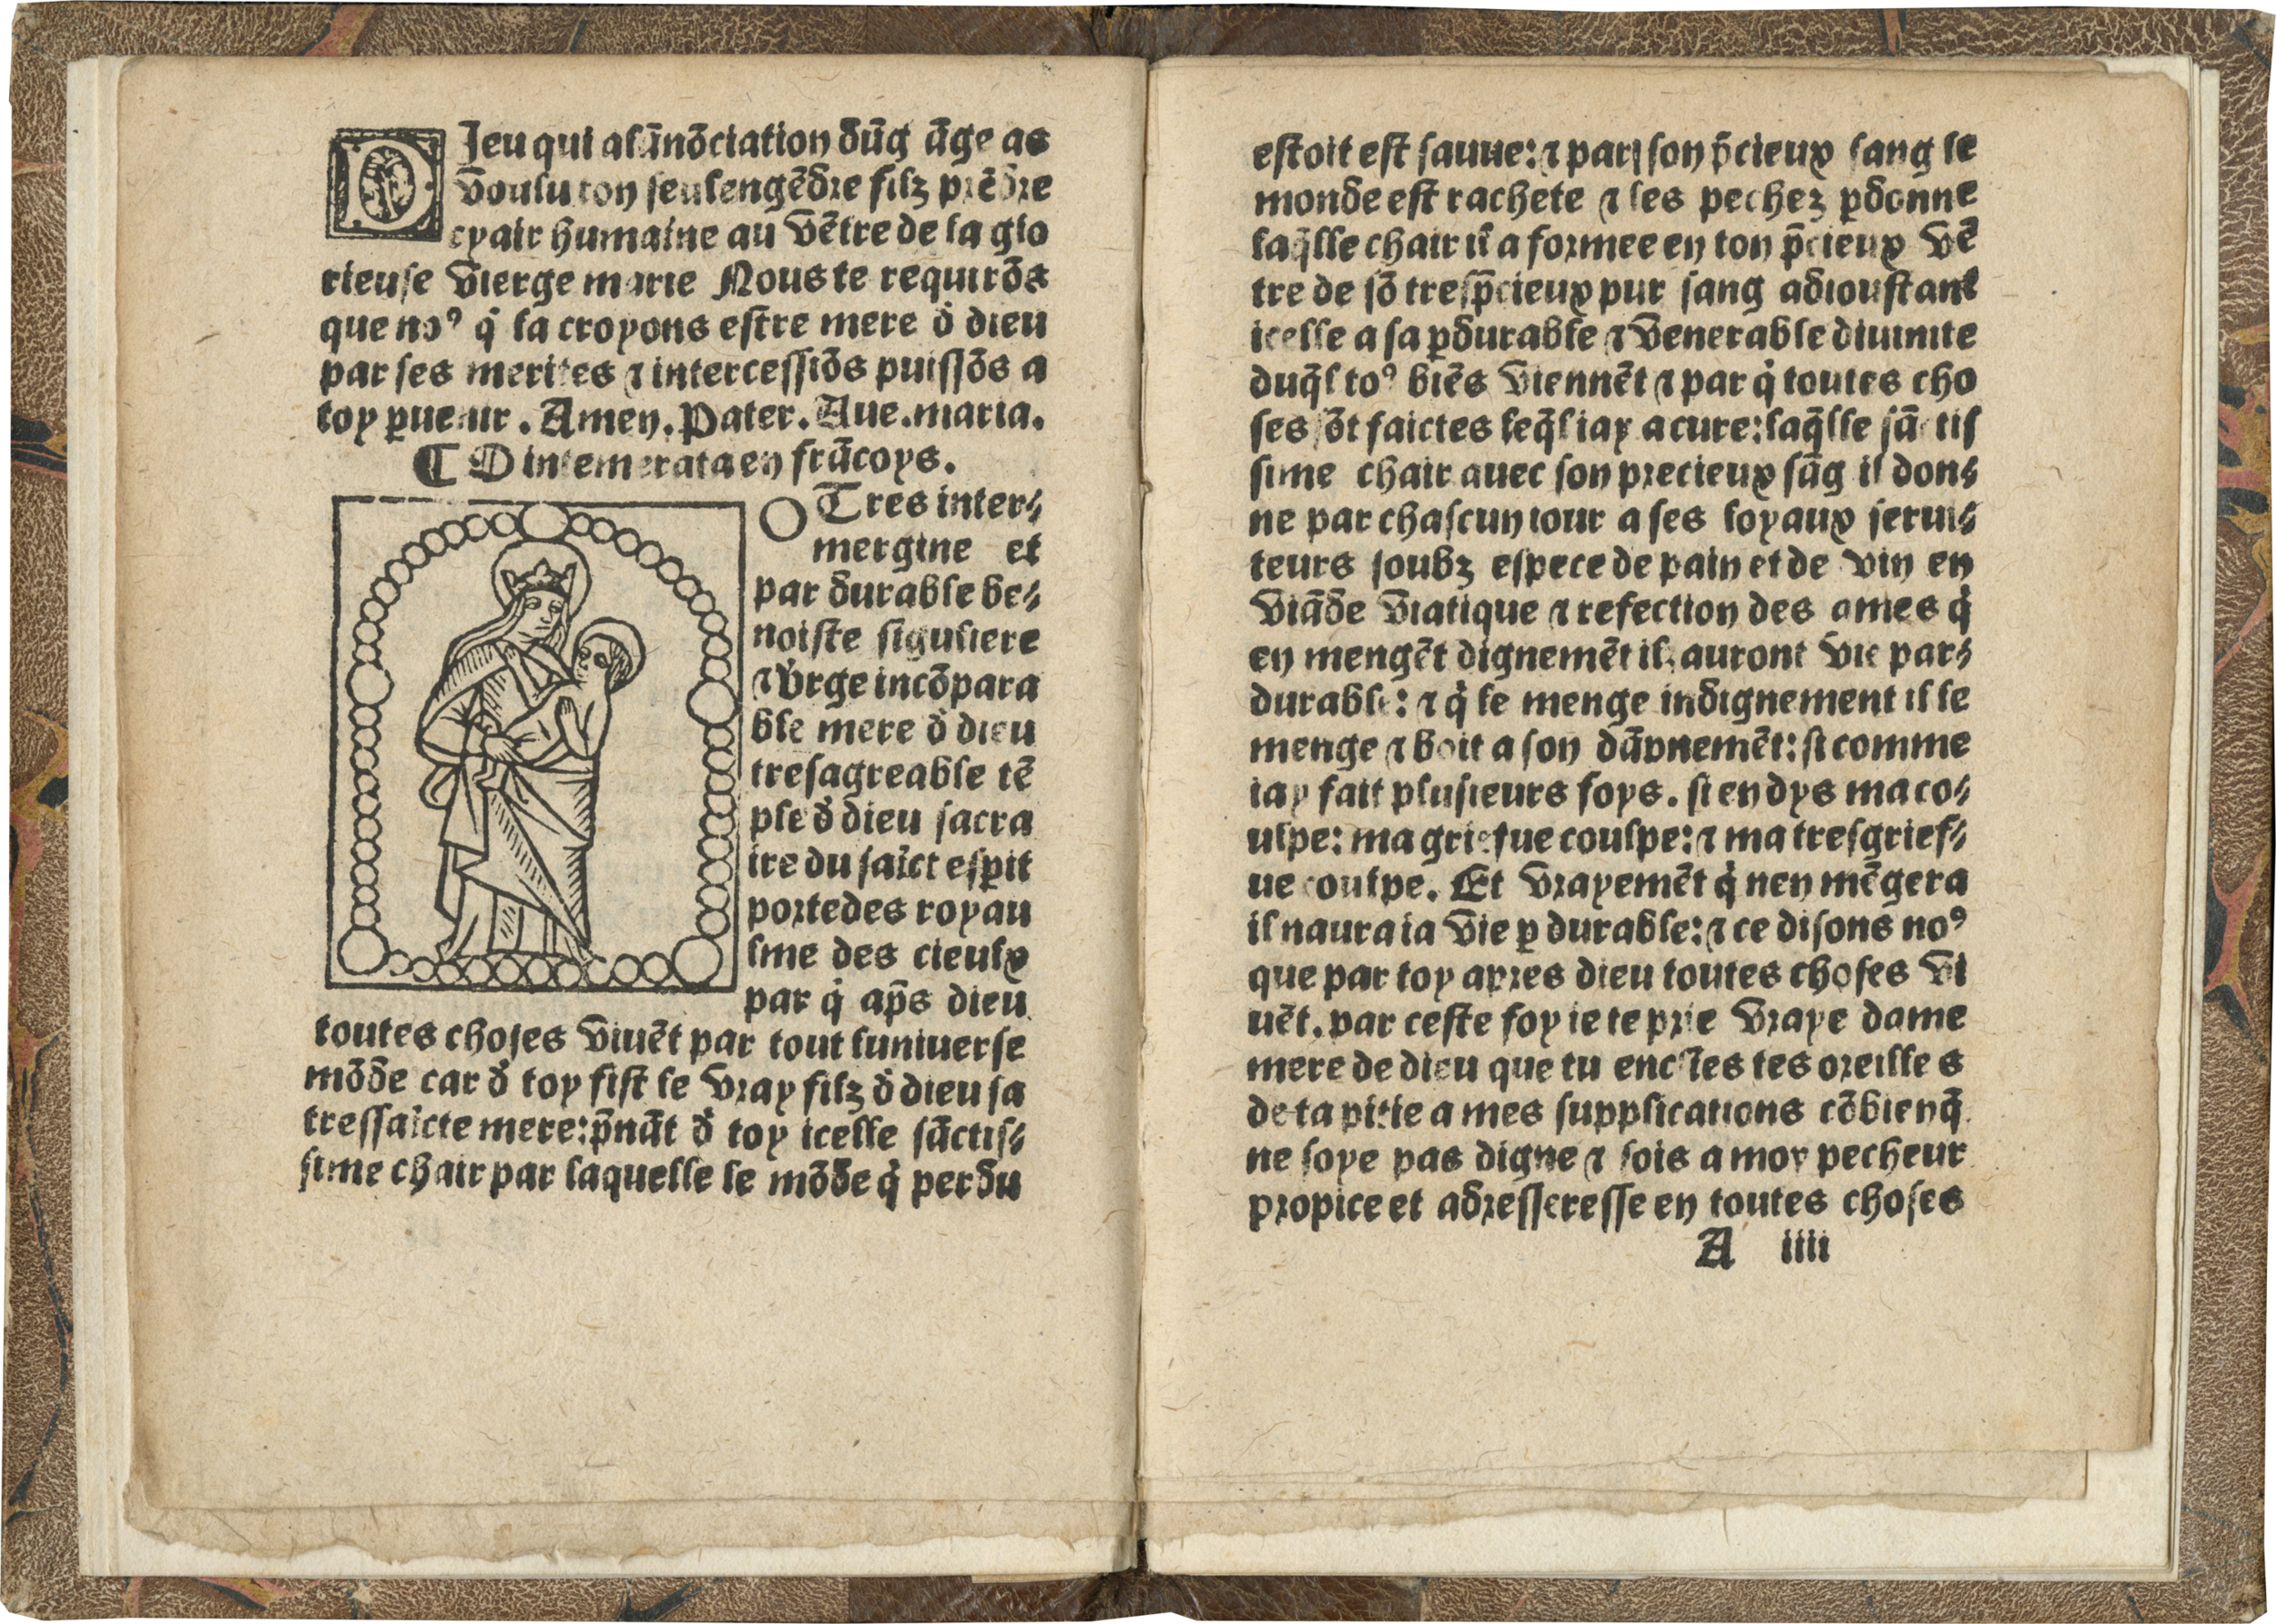 DJeu qui alānōciation dūg āge as
voulu ton seulengēdre filz prēdre
cyair humaine au vētre de la glo
rieuse vierge marie Nous te requirōs
que noꝰ q̇ la croyons estre mere d̕ dieu
par ses merites ⁊ intercessiōs puissōs a
toy ꝑuenir. Amen. Pater. Aue. maria.
¶ O intemerata en frācoys.
O Tres inter⸗
mergine et
par durable be⸗
noiste siguliere
⁊ v̕rge incōpara
ble mere d̕ dieu
tresagreable tē
ple d̕ dieu sacra
ire du saīct esꝑit
portedes royau
lme des cieulx
par q̇ ap̄s dieu
toutes choses viuēt par tout luniuerse
mōde car d̕ toy fist le vray filz d̕ dieu sa
tressaīcte mere: p̄nāt d̕ toy icelle sāctis⸗
sime chair par laquelle le mōde q̇ perdu
estoit est sauue: ⁊ par son p̄cieux sang le
monde est rachete ⁊ les pechez ꝑdonne
laq̄lle chair il a formee en ton p̄cieux vē
tre de sō tresp̄cieux pur sang adioustant
icelle a sa ꝑdurable ⁊ venerable diuinite
duq̄l toꝰ biēs viennēt ⁊ par q̇ toutes cho
ses sōt faictes leq̄l iay a cure: laq̄lle sāctis
sime chair auec son precieux sāg il don⸗
ne par chascun iour a ses loyaux serui⸗
teurs soubz espece de pain et de vin en
viāde viatique ⁊ refection des ames q̇
en mengēt dignemēt ilz auront vie par⸗
durable: ⁊ q̇ le menge indignement il le
menge ⁊ boit a son dāpnemēt: si comme
iay fait plusieurs foys. si en dys ma co⸗
ulpe: ma griefue coulpe: ⁊ ma tresgrief⸗
ue coulpe. Et vrayemēt q̇ nen mēgera
il naura ia vie ꝑ durable: ⁊ ce disons noꝰ
que par toy apres dieu toutes choses vi
uēt. par ceste foy ie te prie vraye dame
mere de dieu que tu enclīes tes oreille s
de ta pitie a mes supplications cōbienq̄
ne soye pas digne ⁊ sois a moy pecheur
propice et adresseresse en toutes choses
A iiii